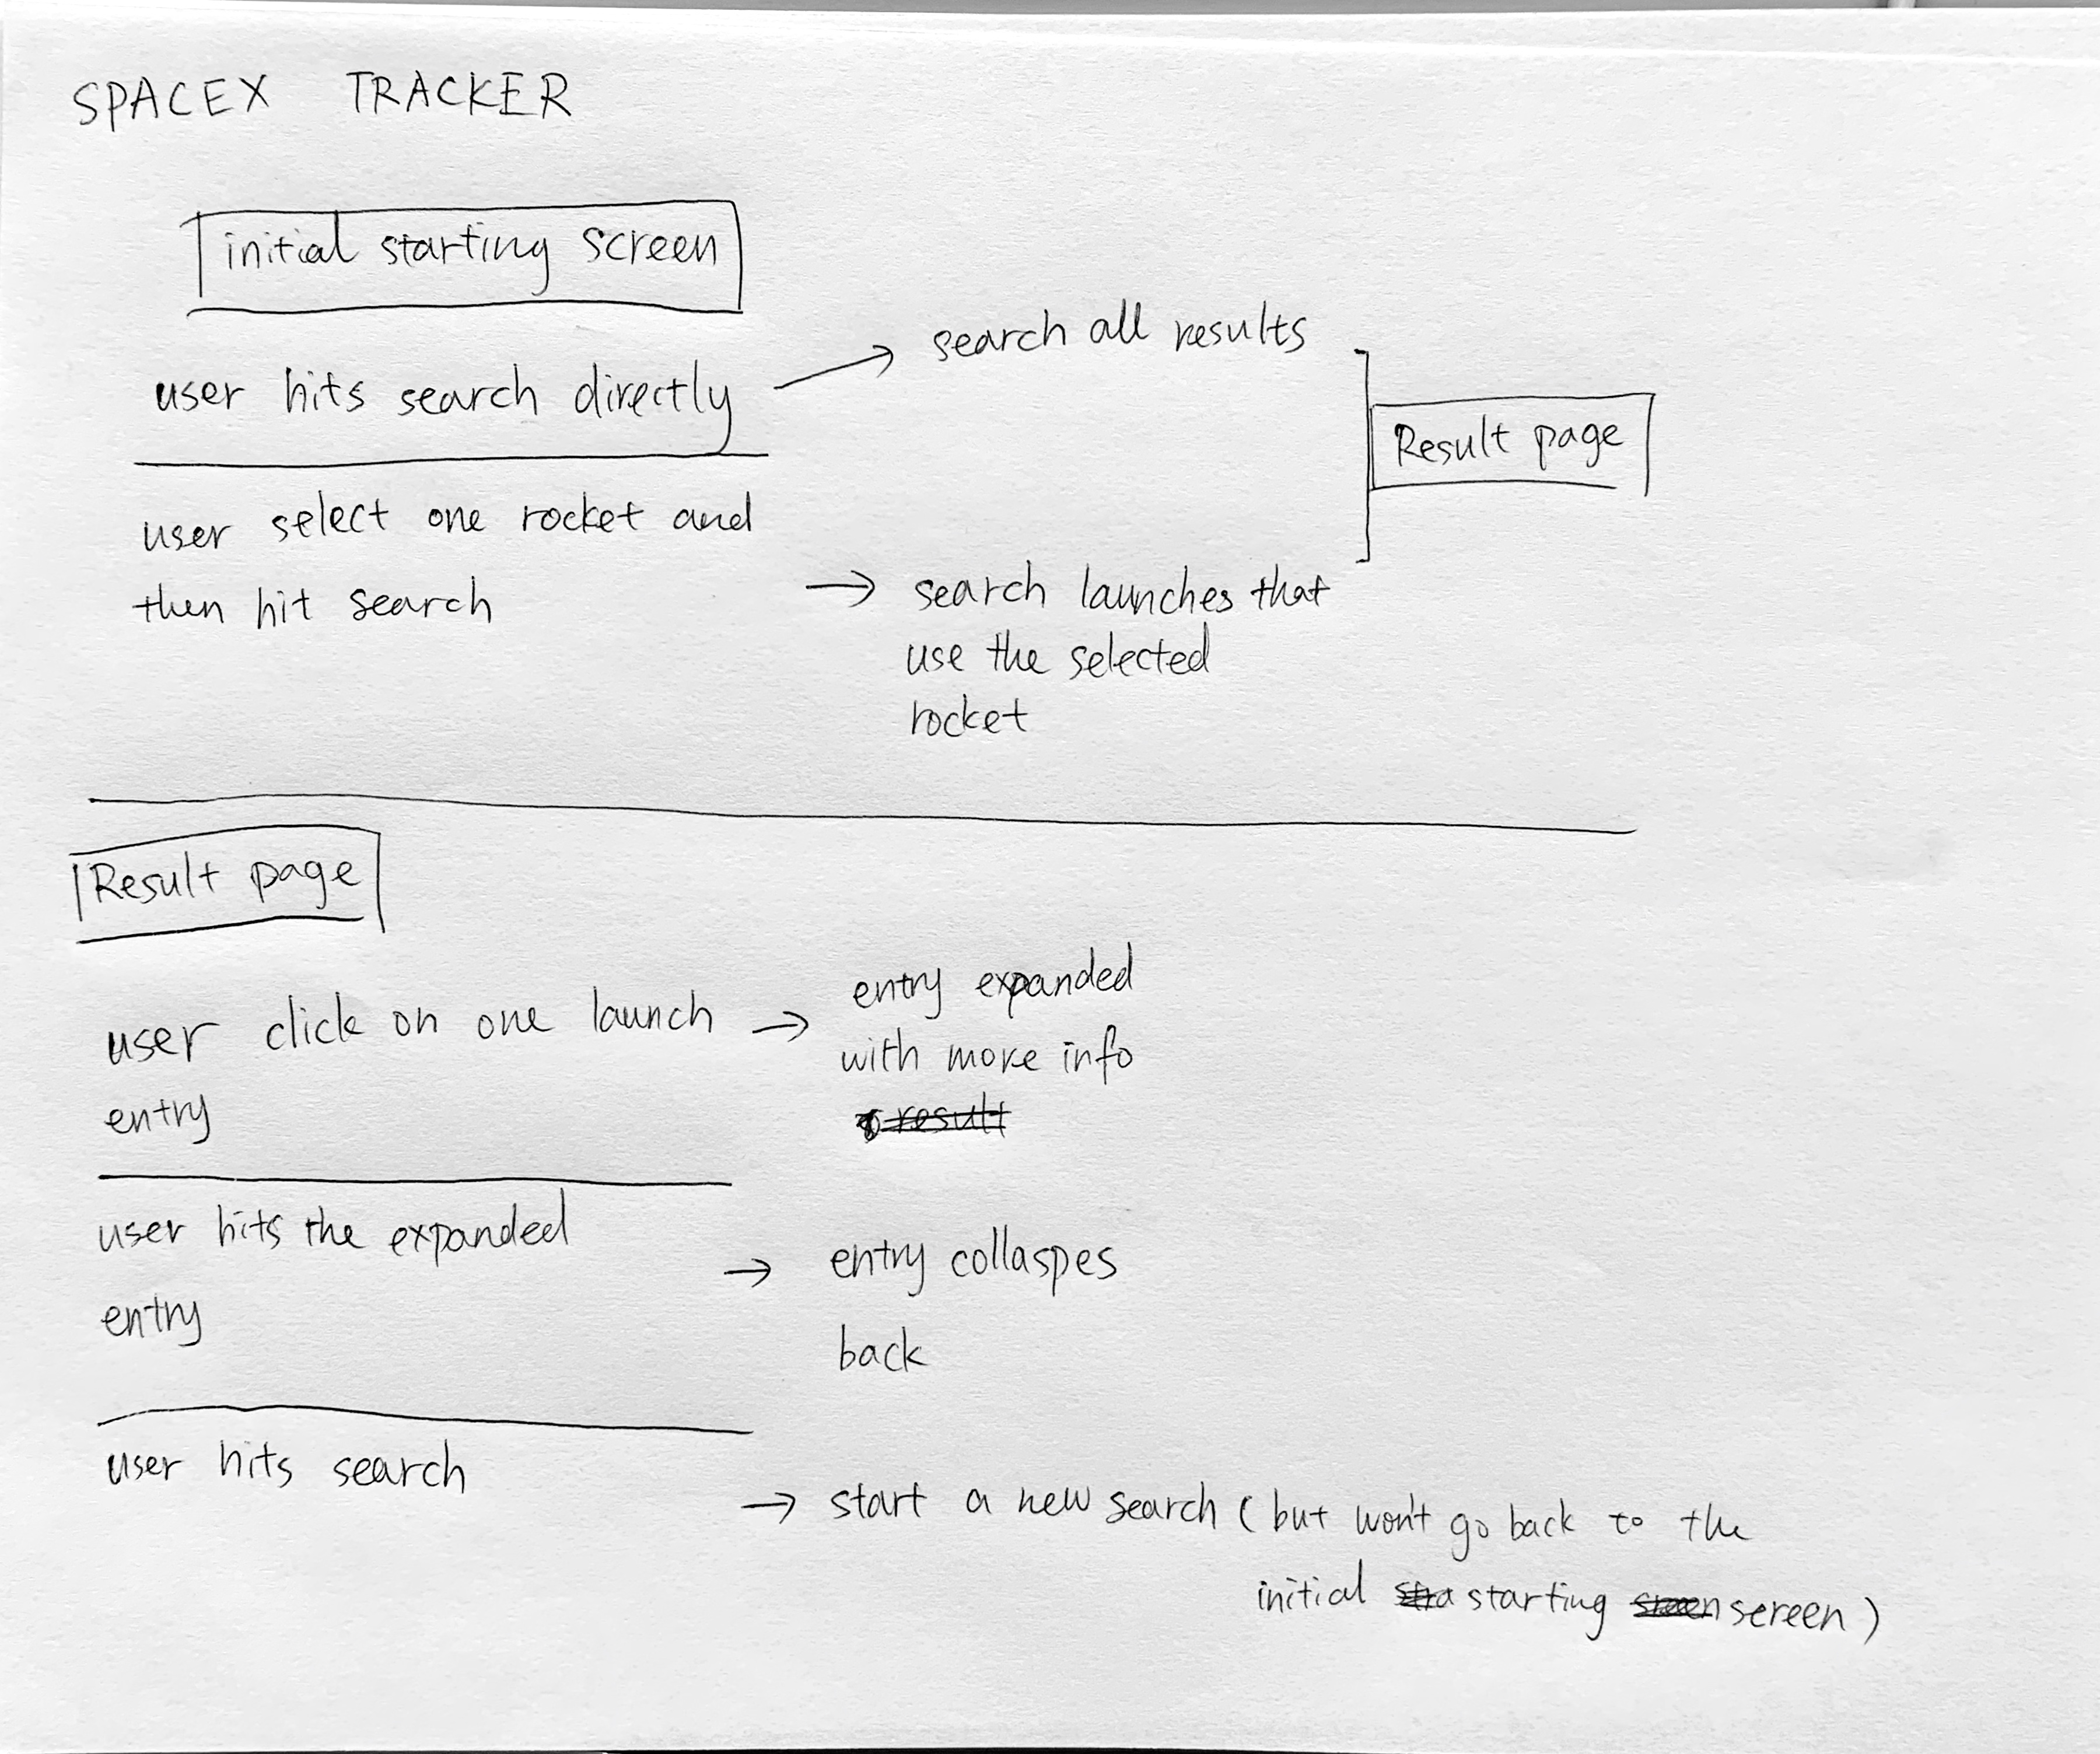 SPACEX TRACKER
initial starting screen
user hits search directly → search all results
user select one rocket and
then hit search → search launches that
use the selected
rocket
Result page
Result page
user click on one launch → entry expanded
entry
with more info
result
user hits the expanded
entry → entry collaspes
back
user hits search
→ start a new search (but won't go back to the
initial sta starting screen screen)